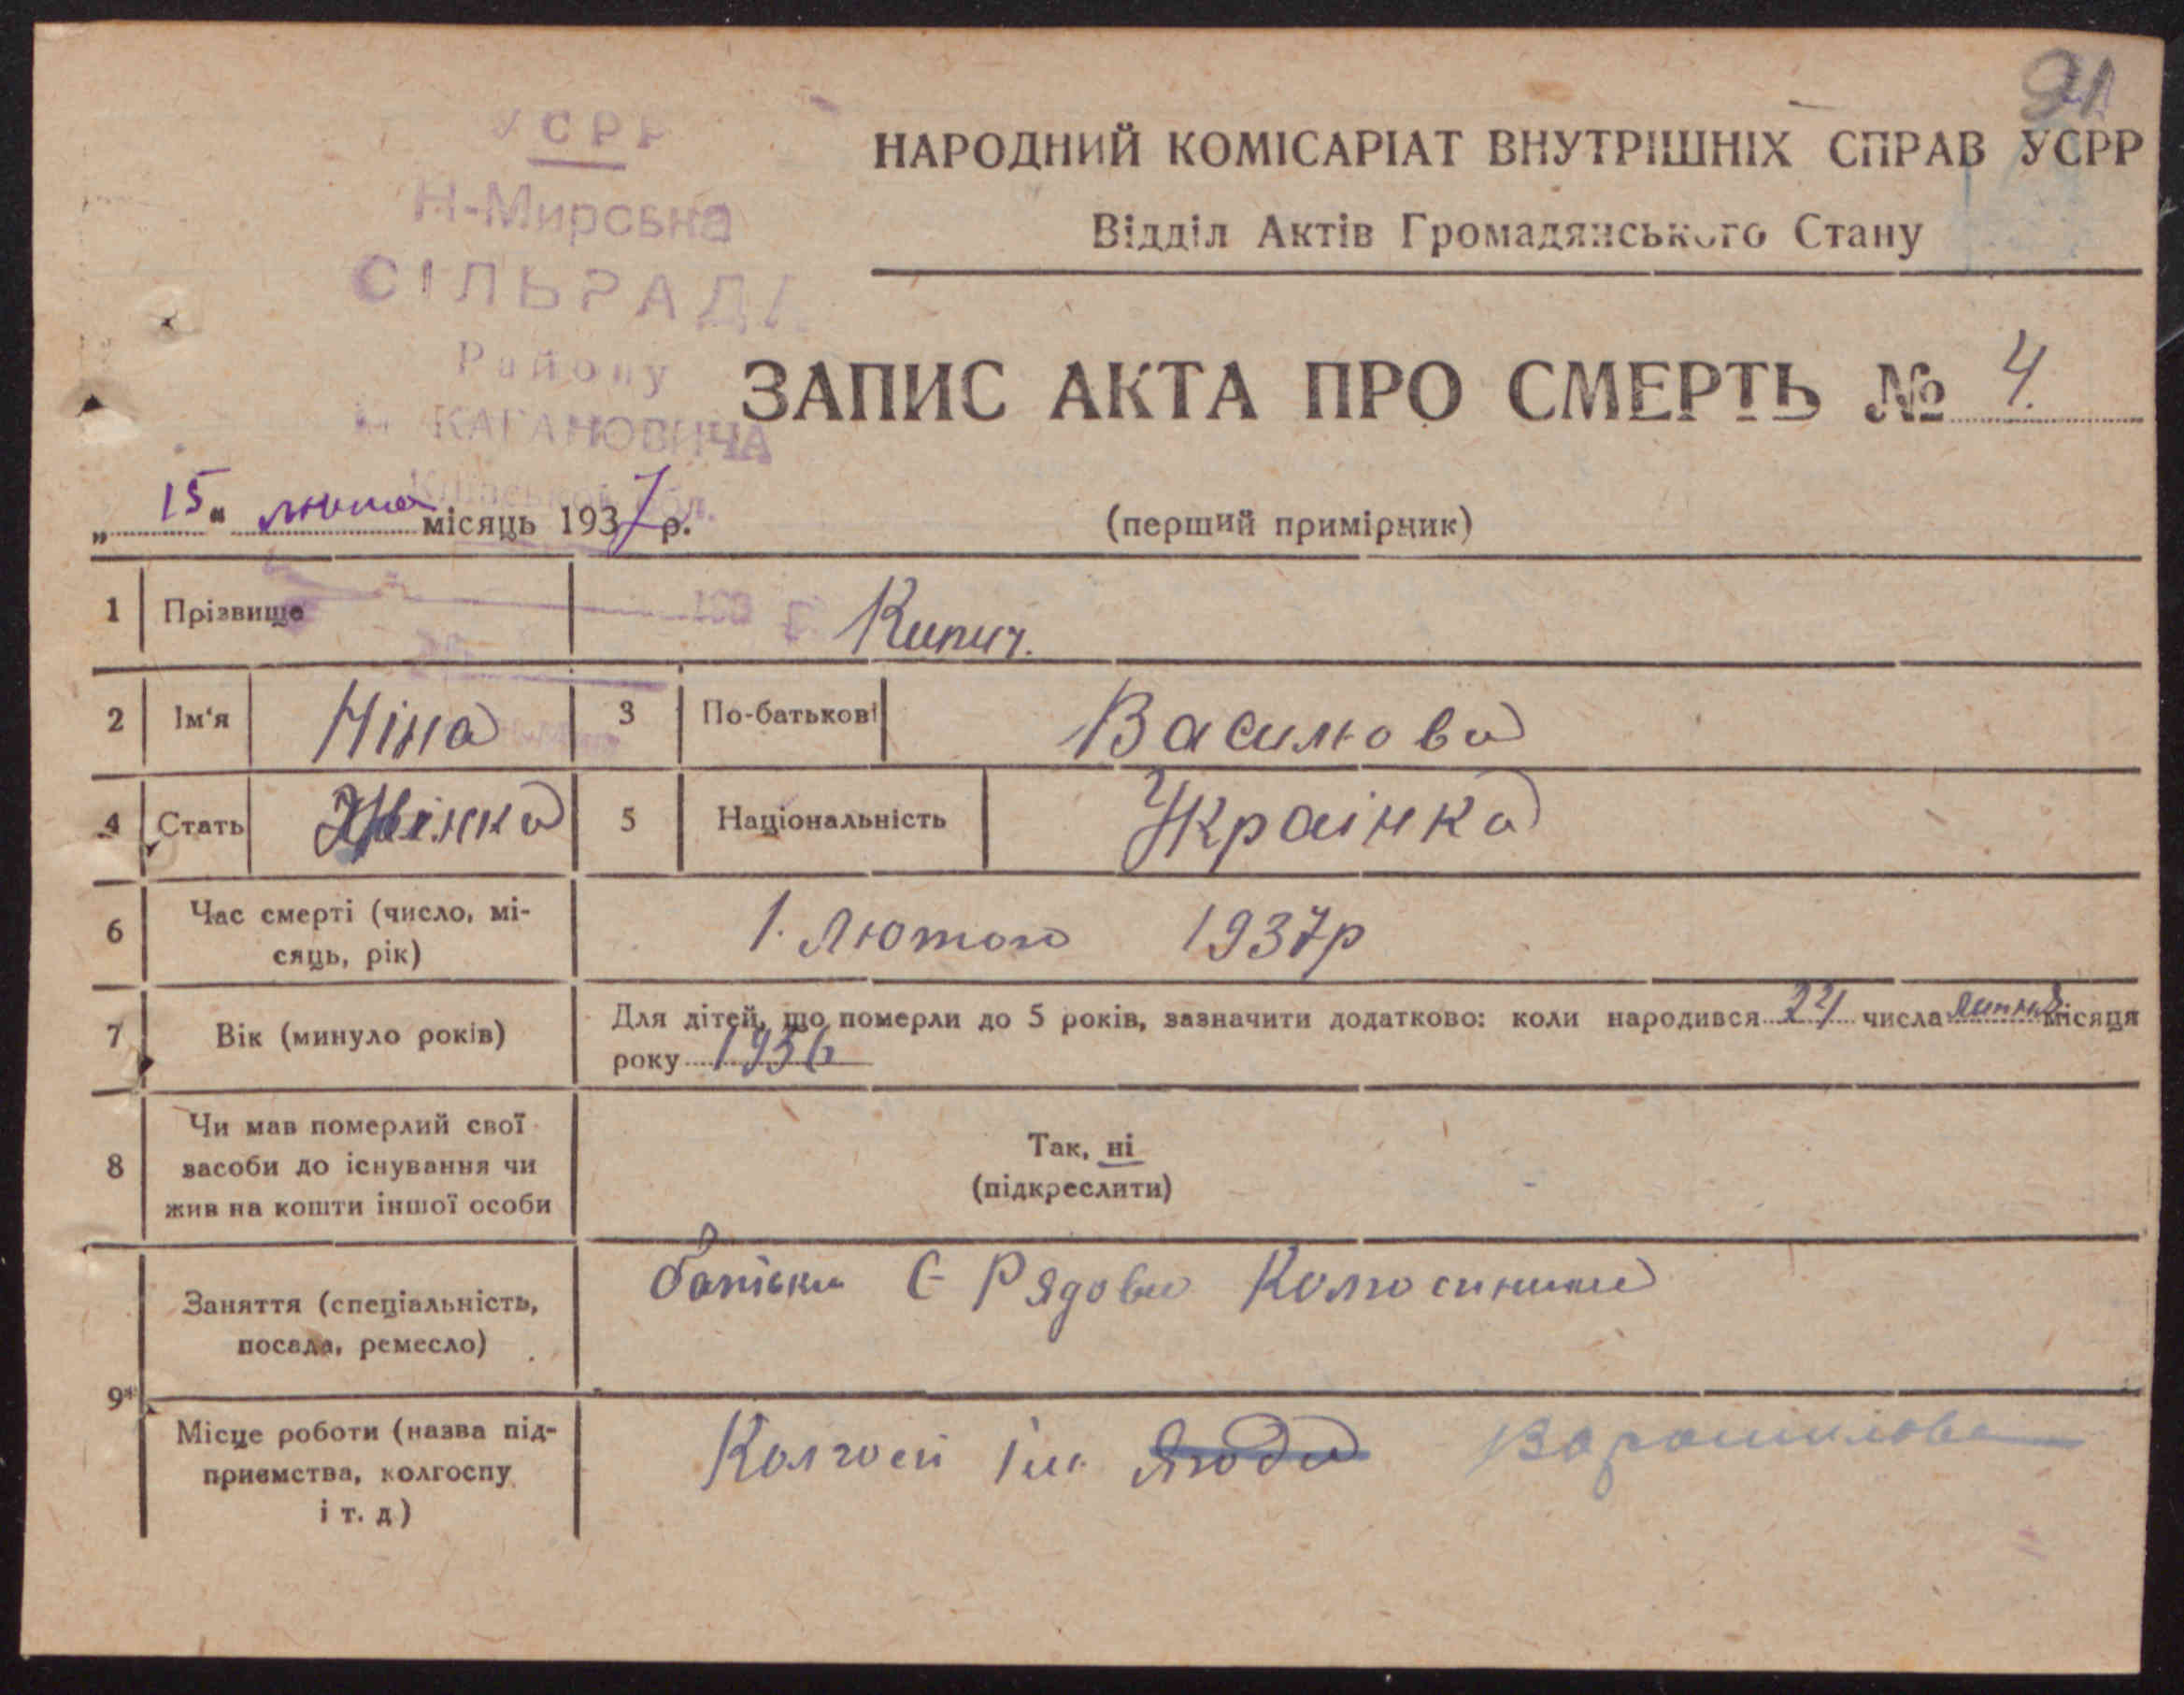 91
УСРР
Н-Мировна
СІЛЬРАДА
Району
КАГАНОВИЧА
Київської обл.
НАРОДНИЙ КОМІСАРІАТ ВНУТРІШНІХ СПРАВ УСРР
Відділ Актів Громадянського Стану
ЗАПИС АКТА ПРО СМЕРТЬ № 4.
„15“ лютого місяць 1937 р.
(перший примірник)
1 Прізвище Кипич.
2 Ім'я Ніна 3 По-батькові Василюва
4 Стать Жінка 5 Національність Украінка
6 Час смерті (число, мі-
сяць, рік) 1. Лютого 1937р
7 Вік (минуло років) Для дітей, що померли до 5 років, зазначити додатково: коли народився числа місяця
року 1936
8 Чи мав померлий свої
засоби до існування чи
жив на кошти іншої особи
Так, ні
(підкреслити)
9* Заняття (спеціальність,
посада, ремесло) батьки Є Рядови
Місце роботи (назва під-
приємства, колгоспу
і т. д) Колгосп Ім. Ягоди Ворошилова